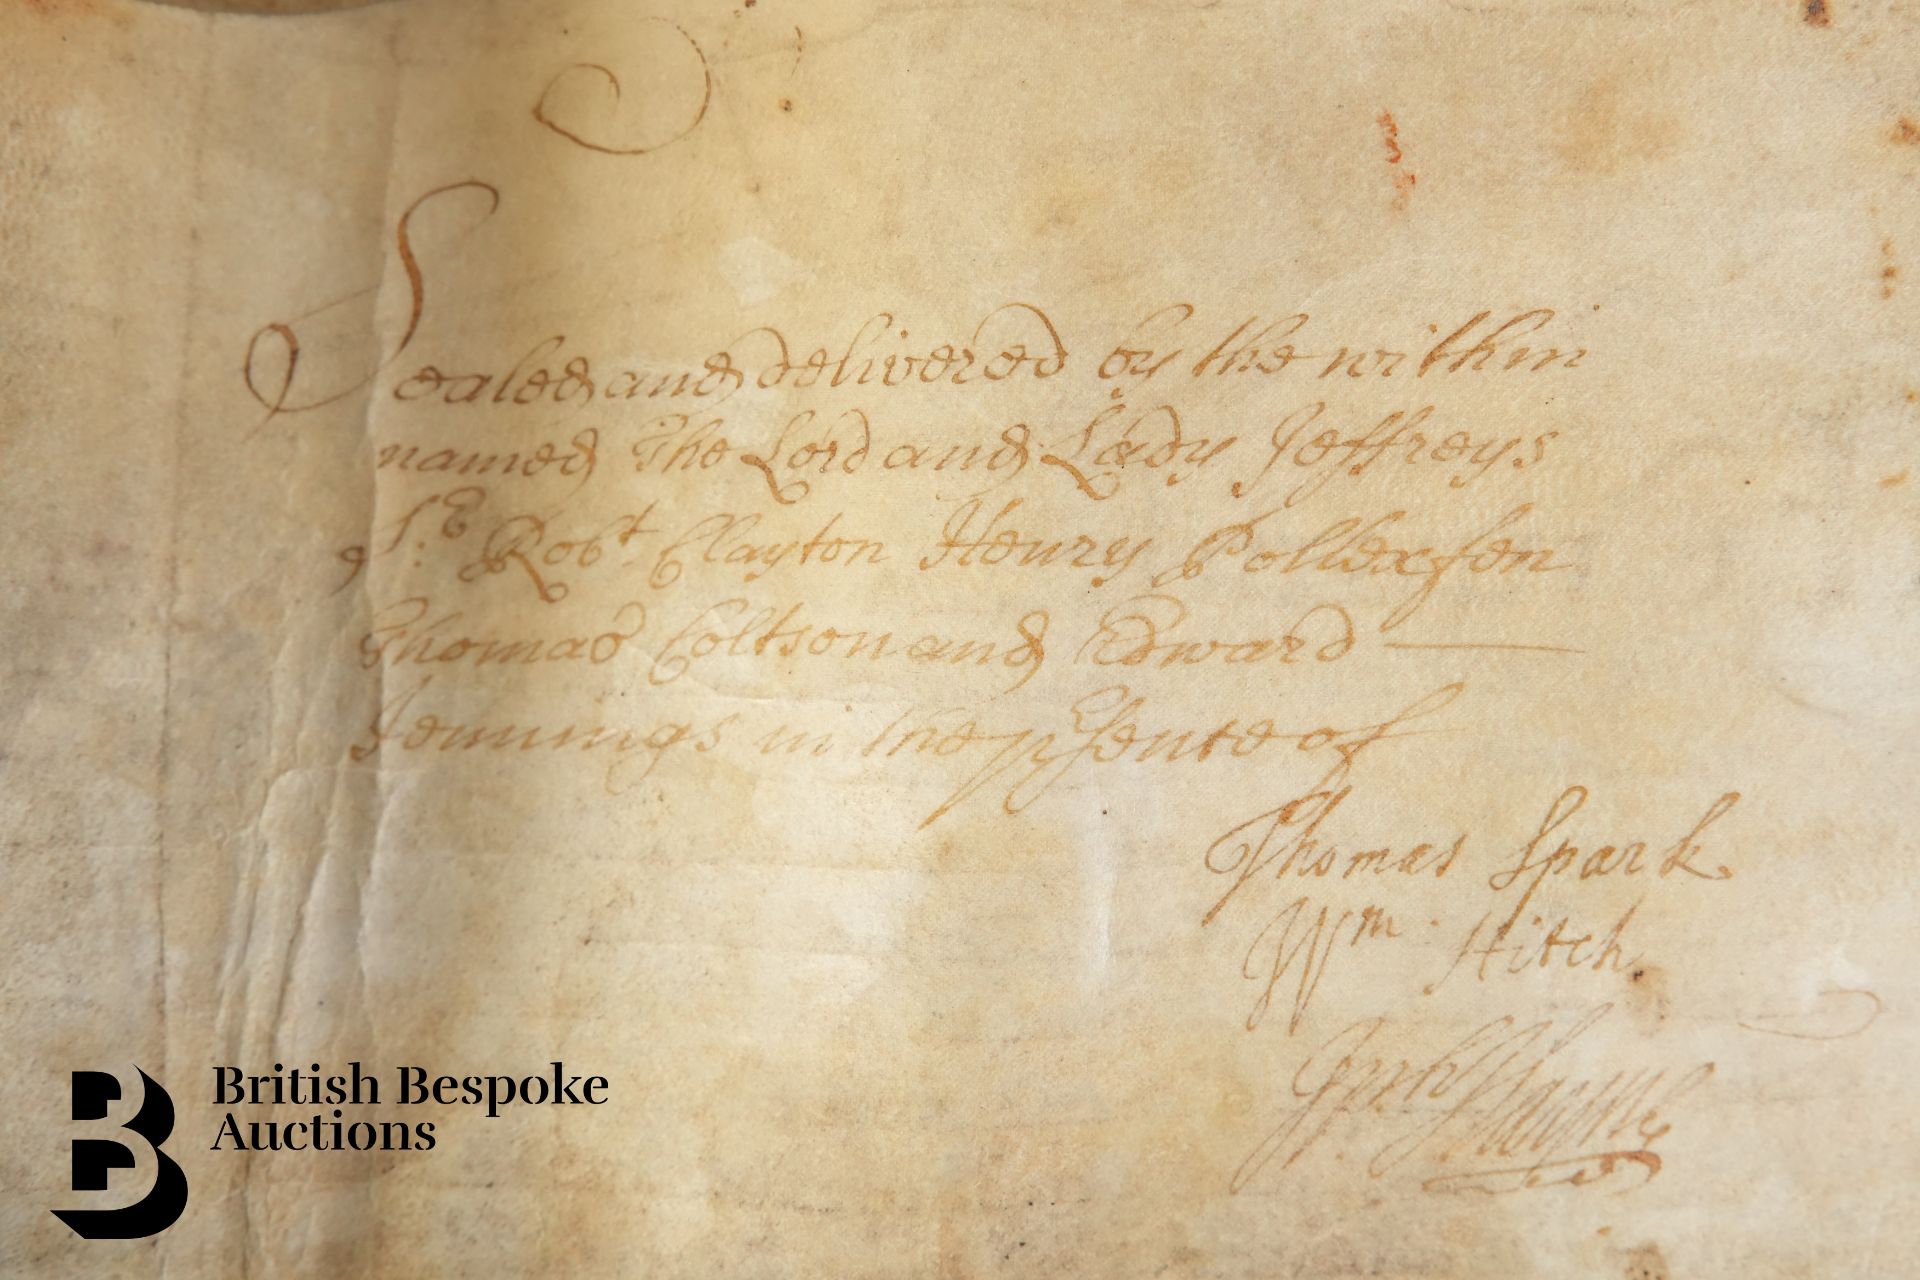 Sealed and delivered by the within
named The Lord and Lady Jeffreys
Sr. Robt. Clayton Henry Pollexfen
Thomas Coltson and Edward
Jennings in the psente of
Thomas Spark
Wm. Hitch
British Bespoke
Auctions